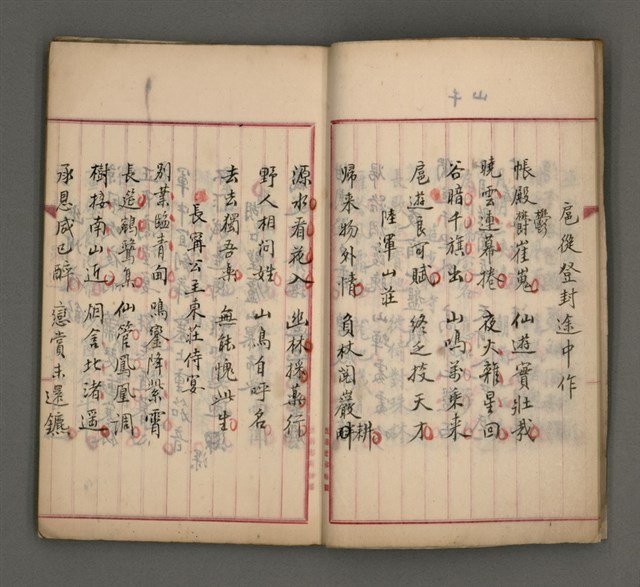 扈從登封途中作
帳殿欝崔嵬 仙遊實壯哉
鬱
曉雲連幕捲 夜火雜星回
谷暗千旗出 山鳴萬乘来
扈遊良可賦 終乏技天才
陸渾山莊
歸来物外情 負杖閲巖耕
源水看花入 幽林採藥行
野人相問姓 山鳥自呼名
去去獨吾樂 無能愧此生
長寧公主東莊侍宴
別業臨青甸 鳴鑾降紫霄
長筵鵷鷺集 仙管鳳凰調
樹接南山近 烟含北渚遥
承恩咸已醉 戀賞未還鑣